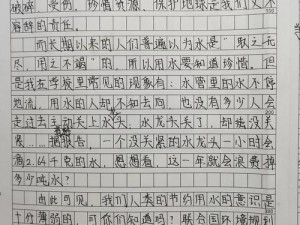 破碎、受伤，珍惜资源、保护地球是我们义不
容辞的责任。
而长期以来的人们普遍以为水是“取之无
尽，用之不竭”的，所以用水要知道珍惜。但
是我在学校里常见的现象有：水管里的水不停
地流，用水的人却不知去向，也没有多少人会
走过去主动关上水头，水龙头开了，却没关
紧……据报告，一个没关紧的水龙头一小时会
滴2.64千克的水，想想看，这一年就会浪费掉
多少吨水？
由此可见，我们人类的节约用水的意识是
十分薄弱的，可你们知道吗？联合国环境规划